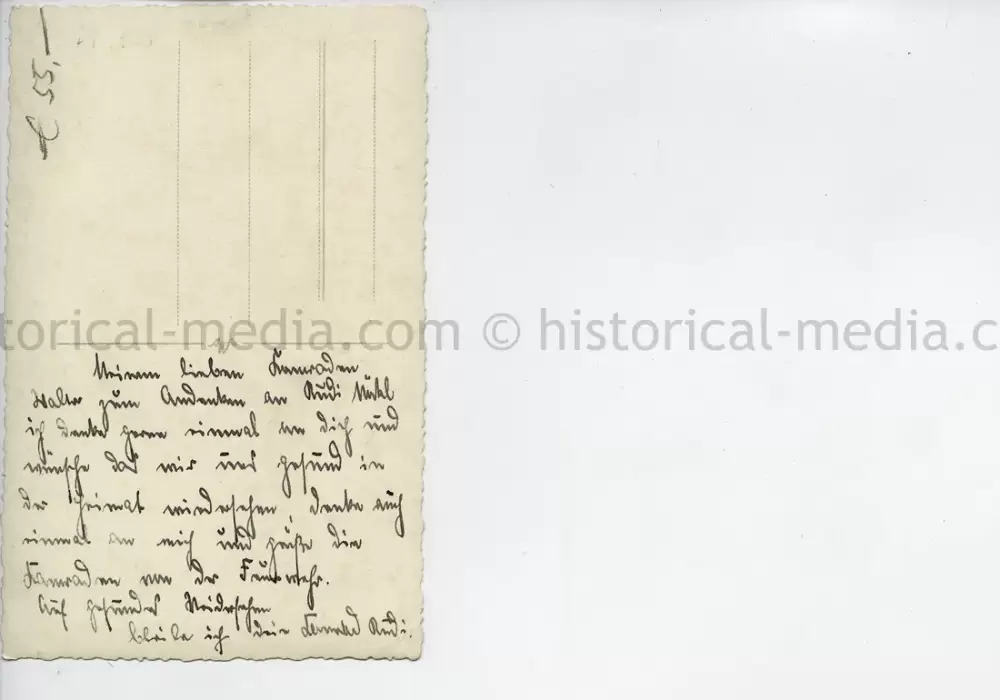 € 55,-
torical-media.com © historical-media.com
Meinem lieben Kamraden
Walter zum Andenken an Rudi
ich denke gerne einmal an dich und
wünsche das wir uns gesund in
der Heimat wiedersehen, denke auch
einmal an mich und grüße die
Kamraden von der Feuerwehr.
Auf gesundes Wiedersehen
bleibe ich dein Kamrad Rudi.